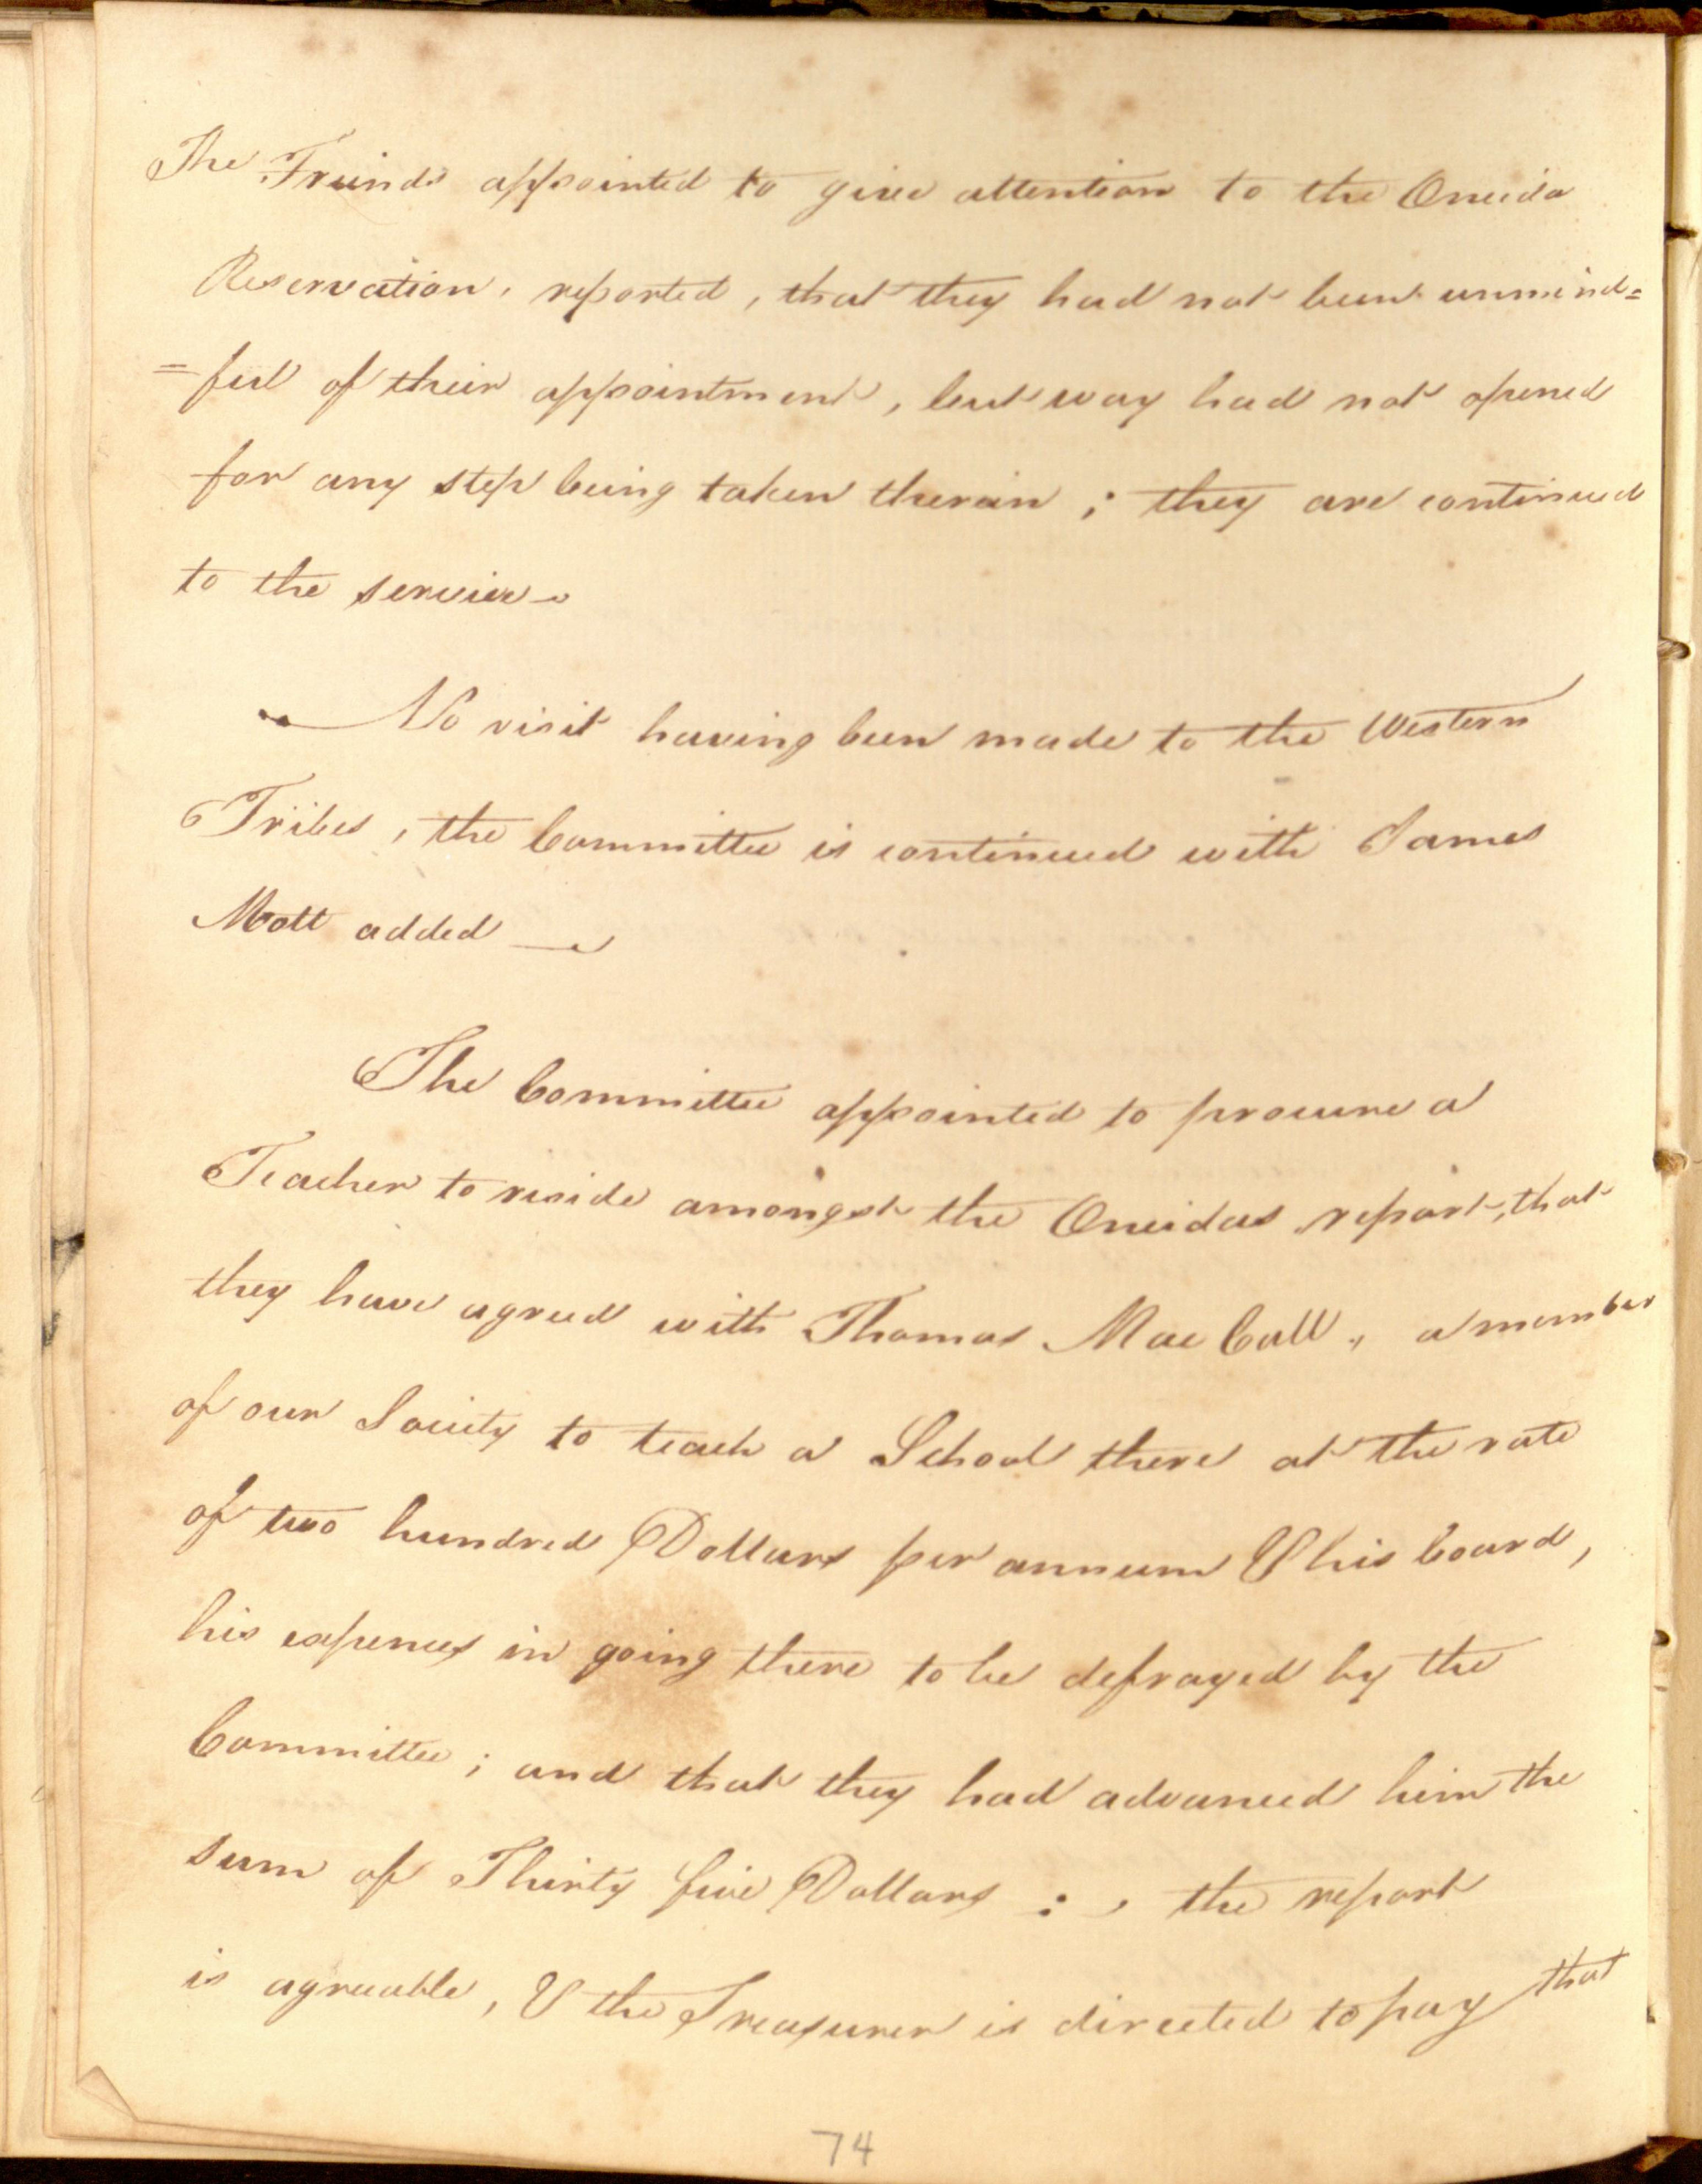 The Friends appointed to give attention to the Oneida
Reservation, reported, that they had not been unmind=
=ful of their appointment, but way had not opened
for any step being taken therein; they are continued
to the service
No visit having been made to the Western
Tribes, the Committee is continued with James
Mott added
The Committee appointed to procure a
Teacher to reside amongst the Oneidas report, that
they have agreed with Thomas Mac Call, a member
of our Society to teach a School there at the rate
of two hundred Dollars per annum & his board,
his expences in going there to be defrayed by the
Committee; and that they had advanced him the
sum of Thirty five Dollars : , the report
is agreeable, & the Treasurer is directed to pay that
74